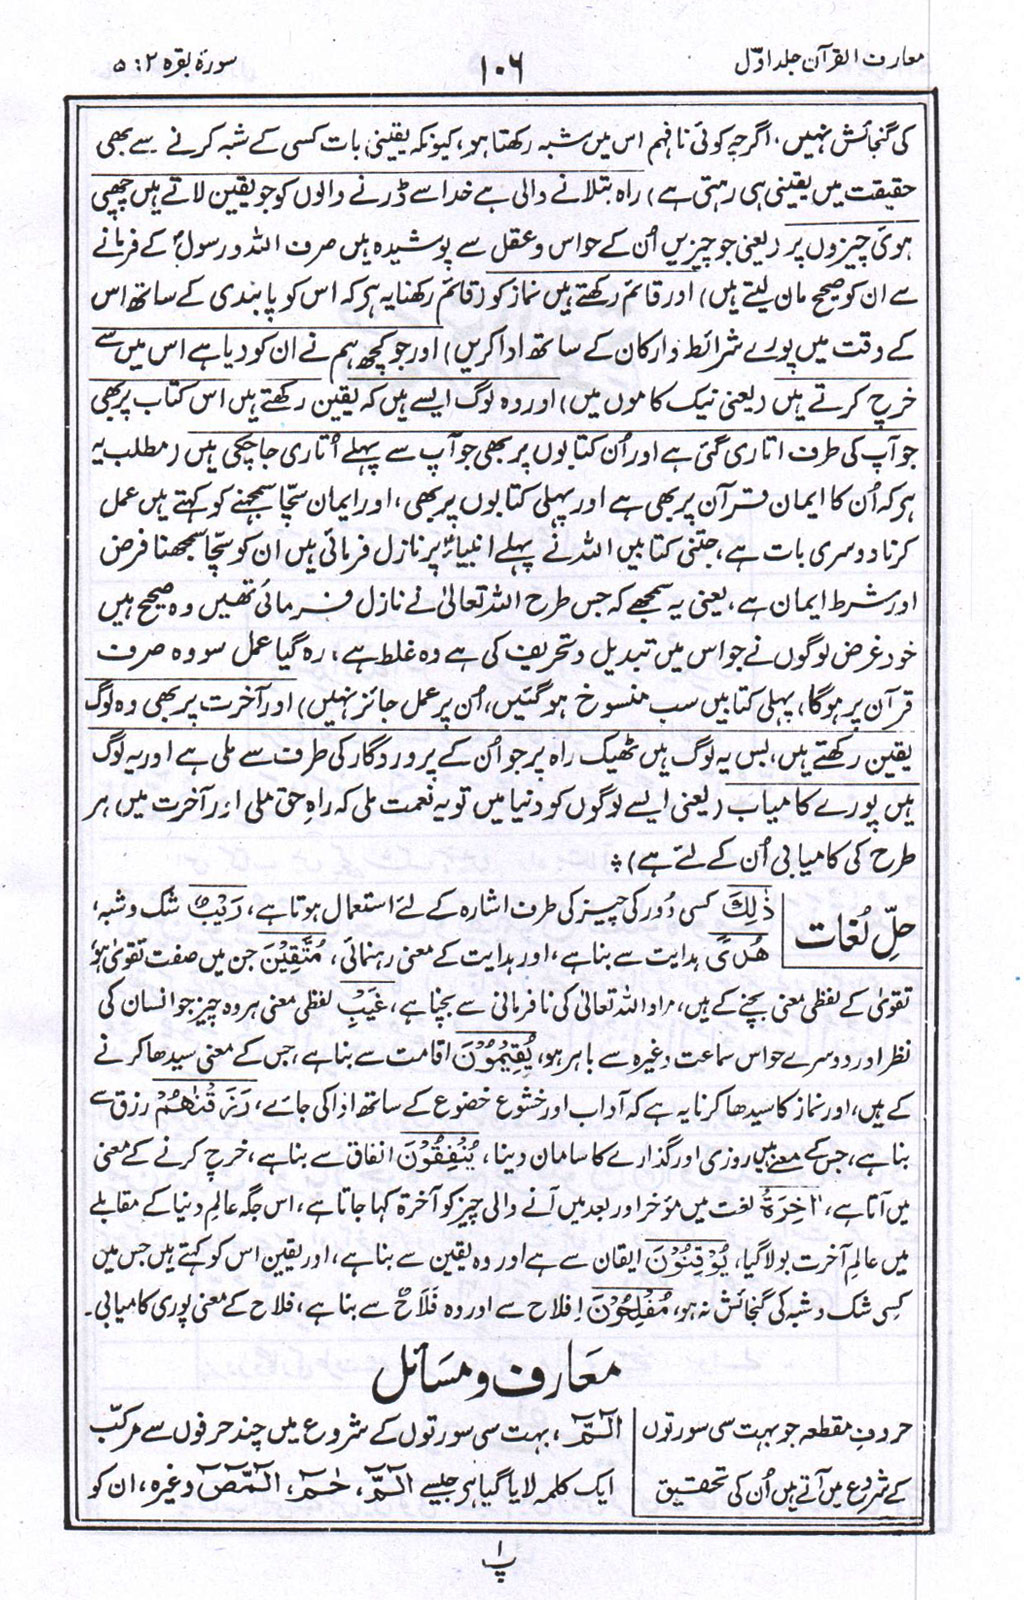 معارف القرآن جلد اوّل
۱۰۶
سورۂ بقرہ ۲ : ۵
کی گنجائش نہیں، اگرچہ کوئی نافہم اس میں شبہ رکھتا ہو، کیونکہ یقینی بات کسی کے شبہ کرنے سے بھی
حقیقت میں یقینی ہی رہتی ہے) راہ بتلانے والی ہے خدا سے ڈرنے والوں کو جو یقین لاتے ہیں چھپی
ہوئی چیزوں پر (یعنی جو چیزیں اُن کے حواس و عقل سے پوشیدہ ہیں صرف اللہ و رسولؐ کے فرمانے
سے ان کو صحیح مان لیتے ہیں) اور قائم رکھتے ہیں نماز کو (قائم رکھنا یہ ہے کہ اس کو پابندی کے ساتھ اس
کے وقت میں پورے شرائط و ارکان کے ساتھ ادا کریں) اور جو کچھ ہم نے ان کو دیا ہے اس میں سے
خرچ کرتے ہیں (یعنی نیک کاموں میں) اور وہ لوگ ایسے ہیں کہ یقین رکھتے ہیں اس کتاب پر بھی
جو آپ کی طرف اتاری گئی ہے اور اُن کتابوں پر بھی جو آپ سے پہلے اُتاری جا چکی ہیں (مطلب یہ
ہے کہ اُن کا ایمان قرآن پر بھی ہے اور پہلی کتابوں پر بھی، اور ایمان سچّا سمجھنے کو کہتے ہیں عمل
کرنا دوسری بات ہے، جتنی کتابیں اللہ نے پہلے انبیاءؑ پر نازل فرمائی ہیں ان کو سچّا سمجھنا فرض
اور شرط ایمان ہے، یعنی یہ سمجھے کہ جس طرح اللہ تعالیٰ نے نازل فرمائی تھیں وہ صحیح ہیں
خود غرض لوگوں نے جو اس میں تبدیل و تحریف کی ہے وہ غلط ہے، رہ گیا عمل سو وہ صرف
قرآن پر ہوگا، پہلی کتابیں سب منسوخ ہو گئیں، اُن پر عمل جائز نہیں) اور آخرت پر بھی وہ لوگ
یقین رکھتے ہیں، بس یہ لوگ ہیں ٹھیک راہ پر جو اُن کے پروردگار کی طرف سے ملی ہے اور یہ لوگ
ہیں پورے کامیاب (یعنی ایسے لوگوں کو دنیا میں تو یہ نعمت ملی کہ راہِ حق ملی اور آخرت میں ہر
طرح کی کامیابی اُن کے لئے ہے) ؛
حلِّ لُغات
ذٰلِكَ کسی دُور کی چیز کی طرف اشارہ کے لئے استعمال ہوتا ہے، رَیْبٌ شک و شبہ،
هُدًى ہدایت سے بنا ہے، اور ہدایت کے معنی رہنمائی، مُتَّقِیْنَ جن میں صفت تقویٰ ہو
تقویٰ کے لفظی معنی بچنے کے ہیں، مراد اللہ تعالیٰ کی نافرمانی سے بچنا ہے، غَیْبِ لفظی معنی ہر وہ چیز جو انسان کی
نظر اور دوسرے حواس سماعت وغیرہ سے باہر ہو، یُقِیْمُوْنَ اقامت سے بنا ہے، جس کے معنی سیدھا کرنے
کے ہیں، اور نماز کا سیدھا کرنا یہ ہے کہ آداب اور خشوع خضوع کے ساتھ ادا کی جائے، رَزَقْنٰهُمْ رزق سے
بنا ہے، جس کے معنے ہیں روزی اور گذارے کا سامان دینا، یُنْفِقُوْنَ انفاق سے بنا ہے، خرچ کرنے کے معنی
میں آتا ہے، اٰخِرَةُ لغت میں مؤخر اور بعد میں آنے والی چیز کو آخرۃ کہا جاتا ہے، اس جگہ عالمِ دنیا کے مقابلے
میں عالمِ آخرت بولا گیا، یُوْقِنُوْنَ ایقان سے ہے اور وہ یقین سے بنا ہے، اور یقین اس کو کہتے ہیں جس میں
کسی شک و شبہ کی گنجائش نہ ہو، مُفْلِحُوْنَ اِفلاح سے اور وہ فَلَاحٌ سے بنا ہے، فلاح کے معنی پوری کامیابی۔
مَعَارف و مسَائل
حروفِ مقطعہ جو بہت سی سورتوں
کے شروع میں آتے ہیں اُن کی تحقیق
الٓمّٓ، بہت سی سورتوں کے شروع میں چند حرفوں سے مرکّب
ایک کلمہ لایا گیا ہے جیسے الٓمّٓ، حٰمٓ، الٓمّٓصٓ وغیرہ، ان کو
پ ۱